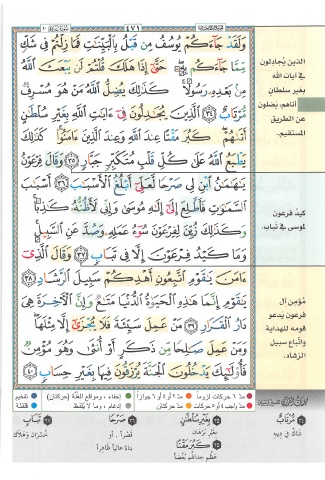 ٤٧١
وَلَقَدْ جَآءَكُمْ يُوسُفُ مِن قَبْلُ بِٱلْبَيِّنَٰتِ فَمَا زِلْتُمْ فِى شَكٍّ
مِّمَّا جَآءَكُم بِهِۦ حَتَّىٰٓ إِذَا هَلَكَ قُلْتُمْ لَن يَبْعَثَ ٱللَّهُ
مِنۢ بَعْدِهِۦ رَسُولًا كَذَٰلِكَ يُضِلُّ ٱللَّهُ مَنْ هُوَ مُسْرِفٌ
مُّرْتَابٌ ٣٤ ٱلَّذِينَ يُجَٰدِلُونَ فِىٓ ءَايَٰتِ ٱللَّهِ بِغَيْرِ سُلْطَٰنٍ
أَتَىٰهُمْ كَبُرَ مَقْتًا عِندَ ٱللَّهِ وَعِندَ ٱلَّذِينَ ءَامَنُوا۟ كَذَٰلِكَ
يَطْبَعُ ٱللَّهُ عَلَىٰ كُلِّ قَلْبِ مُتَكَبِّرٍ جَبَّارٍ ٣٥ وَقَالَ فِرْعَوْنُ
يَٰهَٰمَٰنُ ٱبْنِ لِى صَرْحًا لَّعَلِّىٓ أَبْلُغُ ٱلْأَسْبَٰبَ ٣٦ أَسْبَٰبَ
ٱلسَّمَٰوَٰتِ فَأَطَّلِعَ إِلَىٰٓ إِلَٰهِ مُوسَىٰ وَإِنِّى لَأَظُنُّهُۥ كَٰذِبًا
وَكَذَٰلِكَ زُيِّنَ لِفِرْعَوْنَ سُوٓءُ عَمَلِهِۦ وَصُدَّ عَنِ ٱلسَّبِيلِ
وَمَا كَيْدُ فِرْعَوْنَ إِلَّا فِى تَبَابٍ ٣٧ وَقَالَ ٱلَّذِىٓ
ءَامَنَ يَٰقَوْمِ ٱتَّبِعُونِ أَهْدِكُمْ سَبِيلَ ٱلرَّشَادِ ٣٨
يَٰقَوْمِ إِنَّمَا هَٰذِهِ ٱلْحَيَوٰةُ ٱلدُّنْيَا مَتَٰعٌ وَإِنَّ ٱلْءَاخِرَةَ هِىَ
دَارُ ٱلْقَرَارِ ٣٩ مَنْ عَمِلَ سَيِّئَةً فَلَا يُجْزَىٰٓ إِلَّا مِثْلَهَا
وَمَنْ عَمِلَ صَٰلِحًا مِّن ذَكَرٍ أَوْ أُنثَىٰ وَهُوَ مُؤْمِنٌ
فَأُو۟لَٰٓئِكَ يَدْخُلُونَ ٱلْجَنَّةَ يُرْزَقُونَ فِيهَا بِغَيْرِ حِسَابٍ ٤٠
الذين يُجادلون
في آيات الله
بغير سلطان
أتاهم، يَضلون
عن الطريق
المستقيم.
كيدُ فرعون
لموسى في تَباب.
مُؤمن آل
فرعون يَدعو
قومه للهداية
واتّباع سبيل
الرّشاد.
مدّ ٦ حركات لزوماً
مدّ ٢ أو ٤ أو ٦ جوازاً
إخفاء، ومواقع الغُنَّة (حركتان)
تفخيم
مدّ واجب ٤ أو ٥ حركات
مدّ حركتان
إدغام، وما لا يُلفظ
قلقلة
٣٤ مُّرْتَابٌ
شاكّ في دينه
٣٥ بِغَيْرِ سُلْطَٰنٍ
بغير برهان
٣٥ كَبُرَ مَقْتًا
عظم جدالهم بُغضاً
٣٦ صَرْحًا
قصراً. أو
بناءً عالياً ظاهراً
٣٧ تَبَابٍ
خسران وهلاك